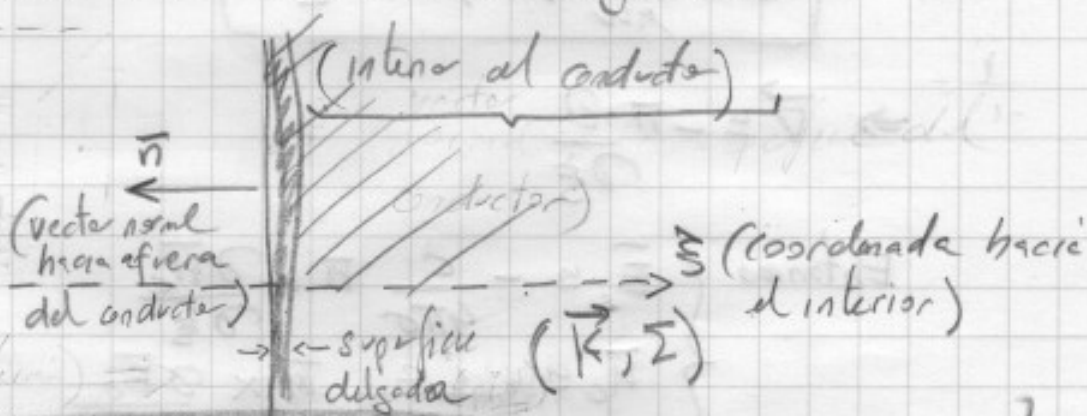 (interior al conductor)
n̄
(vector normal
hacia afuera
del conductor)
conductor)
ξ (coordenada hacia
el interior)
superficie
delgada
(K⃗, Σ)